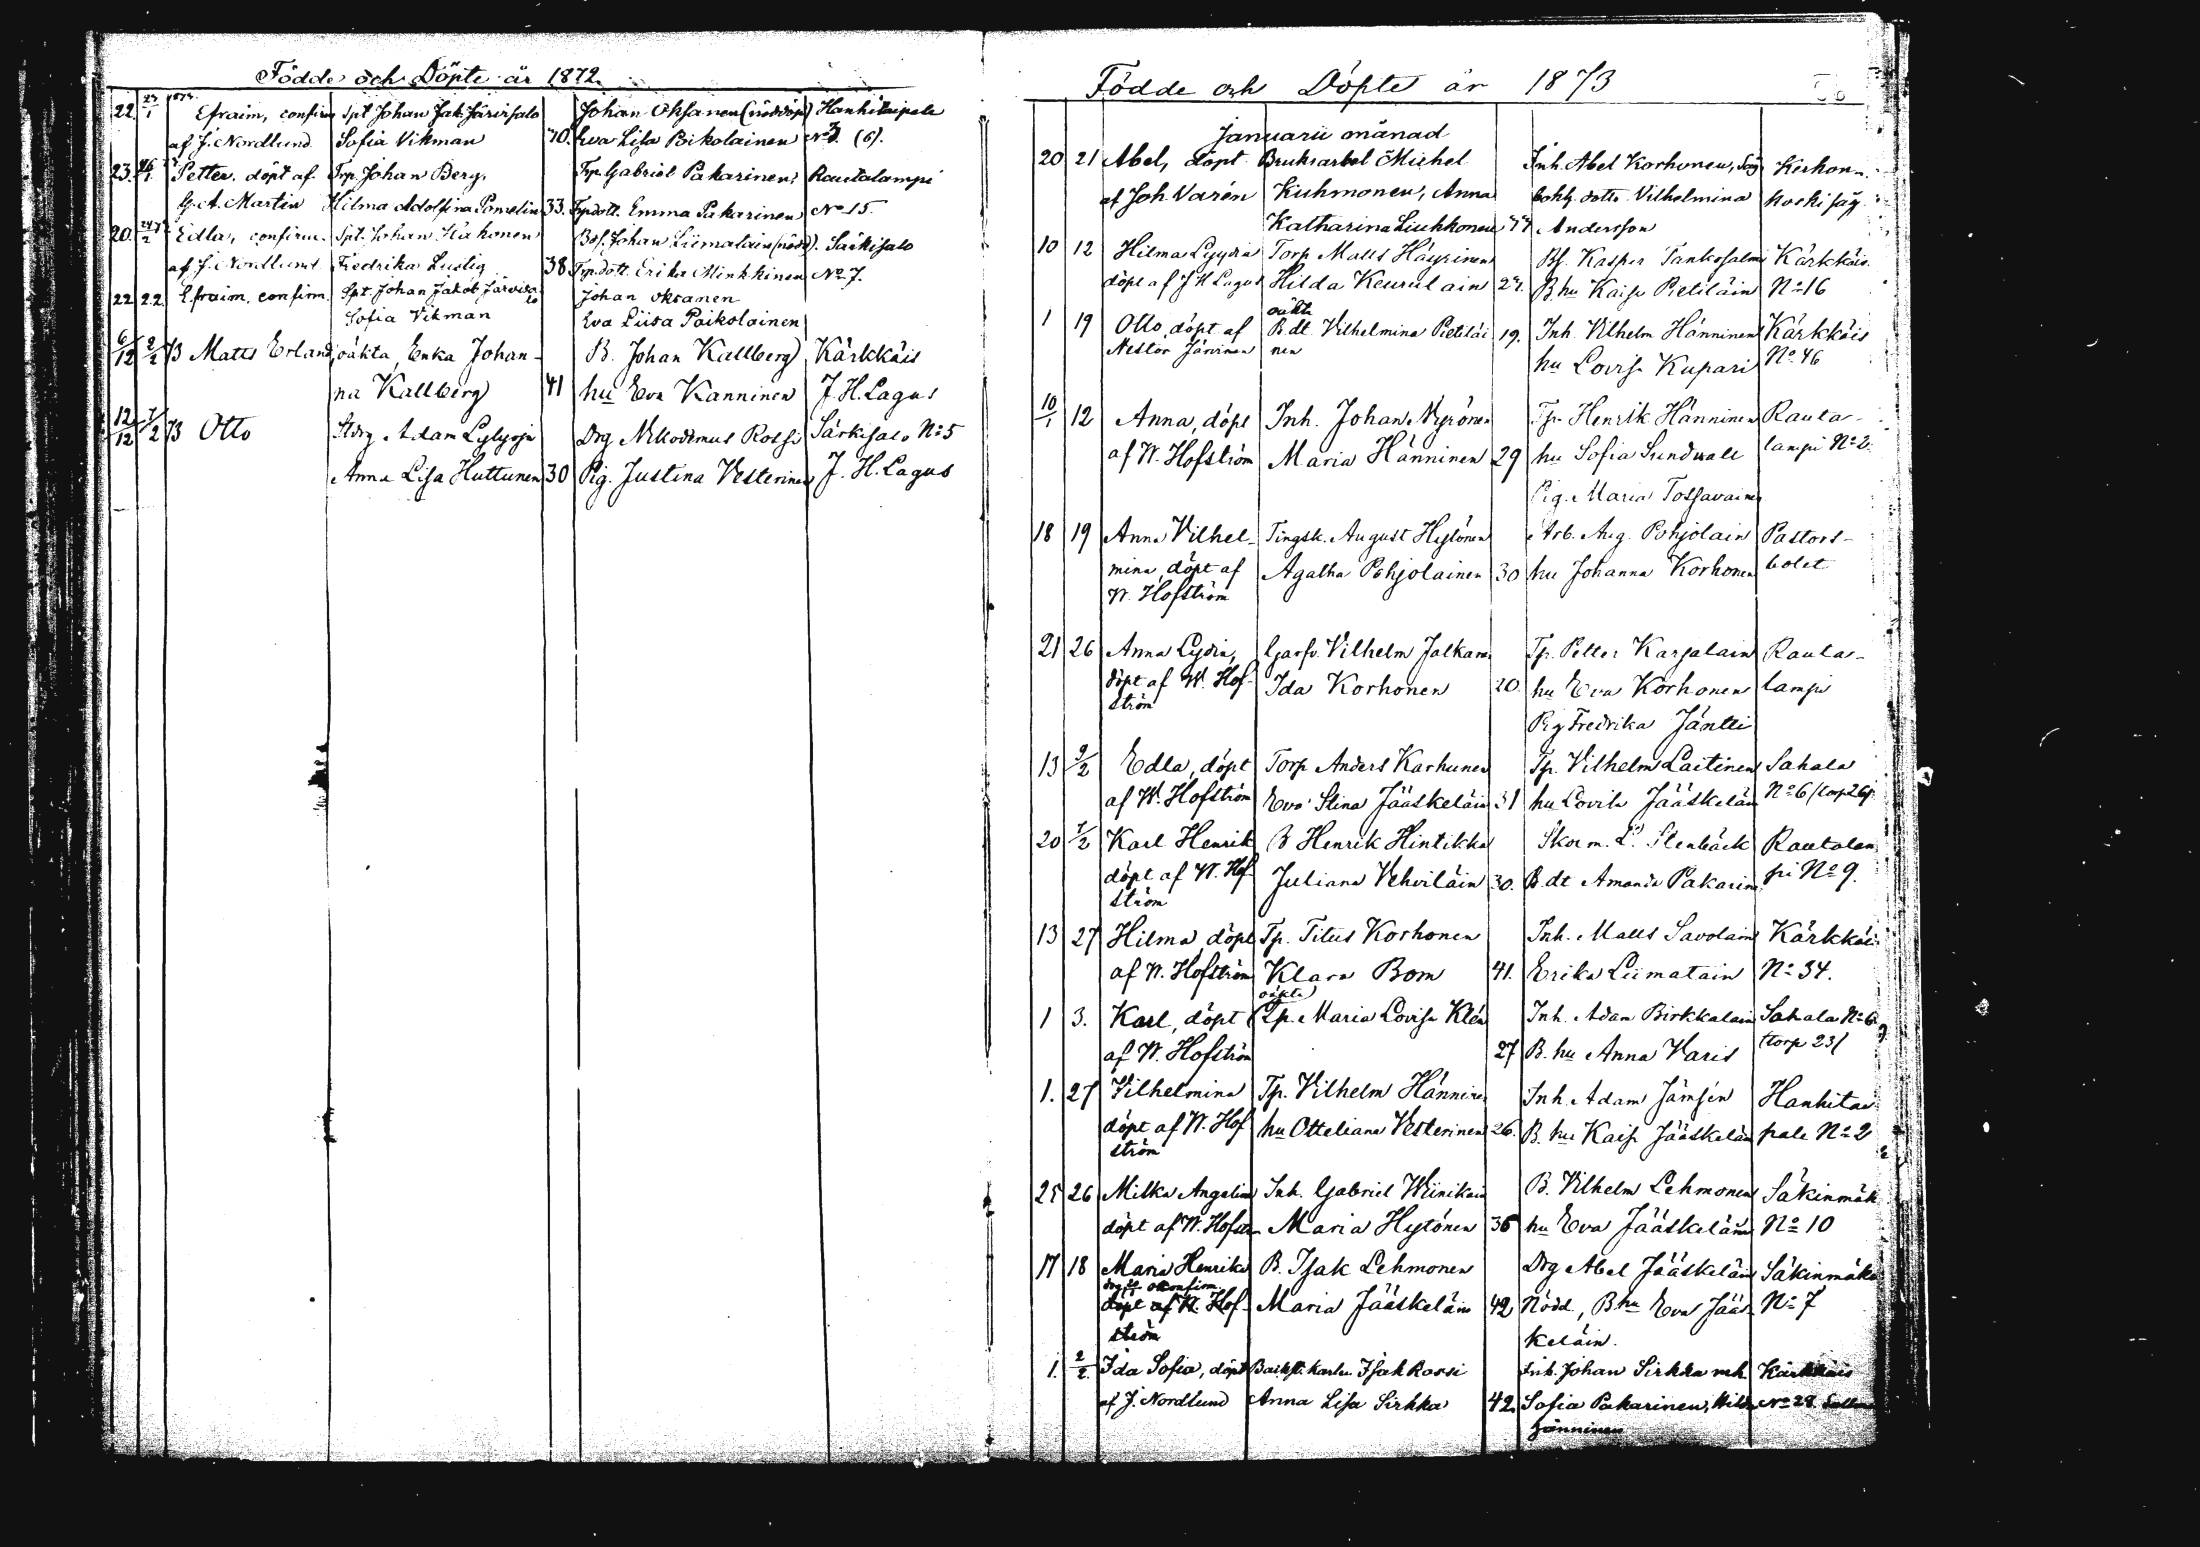 Födde och Döpte år 1872
22. 23/1 1873. Efraim, confirm Spt Johan Jak Järvisalo Johan Oksanen (nöddöpt) Hankitaipale
af J. Nordlund Sofia Vikman 40. Eva Lisa Poikolainen No 3 (6).
23. 26/1 Petter, döpt af Trp. Johan Berg. Trp. Gabriel Pakarinen, Rautalampi
G. A. Martin Hilma Adolfina Pomelin 33. Trpdott. Emma Pakarinen No 15.
20. Edla, confirm. Spt. Johan Kähönen Bos. Johan Liimatain (nödd). Särkisalo
af J. Nordlund Fredrika Lustig 38 Trp.dott. Erika Minkkinen No 7.
22 22 Efraim, confirm. Spt. Johan Jakob Järvisalo Johan Oksanen
Sofia Vikman Eva Liisa Poikolainen
6/12 2/2 73 Matts Erland, oäkta, Erika Johan- B. Johan Kallberg Kärkkäis
na Kallberg 41 hu Eva Kanninen J. H. Lagus
12/12 7/2 73 Otto Adam Lylyoja Drg Nikodemus Rossi Särkisalo No 5
Anna Lisa Huttunen 30 Pig. Justina Vesterinen J. H. Lagus
Födde och Döpte år 1873
Januarii månad
20 21 Abel, döpt Bruksarbet Michel Inh. Abel Korhonen, Kerkon-
af Joh. Varén Kuhmonen, Anna dotter Vilhelmina koski såg
Katharina Liukkonen Andersson
10 12 Hilma Lyydia Torp Matts Häyrinen Bs. Kasper Tankosalmi Kärkkäis
döpt af J H Lagus Hilda Keurulain 27. B hu Kaisa Pietiläin No 16
1 19 Otto, döpt af oäkta B. dt. Vilhelmina Pietiläi 19. Inh Vilhelm Hänninen Kärkkäis
Nestor Järvinen nen hu Lovisa Kupari No 46
10/1 12 Anna, döpt Inh. Johan Nyrönen Tp. Henrik Hänninen Rauta-
af W. Hofström Maria Hänninen 29 hu Sofia Sundvall lampi No 2.
Pig. Maria Tossavainen
18 19 Anna Vilhel- Tingsk. August Hytönen Arb. Aug. Pohjolain Pastors-
mina, döpt af Agatha Pohjolainen 30 hu Johanna Korhonen bolet
W. Hofström
21 26 Anna Lydia, Garfv. Vilhelm Jalkanen Tp. Petter Karjalain Rauta-
döpt af W. Hof- Ida Korhonen 20. hu Eva Korhonen lampi
ström Pig Fredrika Jäntti
13 9/2 Edla, döpt Torp Anders Karhunen Tp. Vilhelm Laitinen Sahala
af W. Hofström Eva Stina Jääskeläin 31 hu Lovisa Jääskeläin No 6 (torp 26)
20 7/2 Karl Henrik B Henrik Hintikka Skom. Stenbäck Rautalam
döpt af W. Hof- Juliana Vehviläin 30. B. dt Amanda Pakarinen pi No 9.
ström
13 27 Hilma, döpt Tp. Titus Korhonen Inh. Matts Savolain Kärkkäis
af W. Hofström Klara Bom 41. Erika Liimatain No 34.
1 3. Karl, döpt oäkta Maria Lovisa Klén Inh. Adam Birkkalain Sahala No 6
af W. Hofström 27 B. hu Anna Varis torp 23
1. 27 Vilhelmina Tp. Vilhelm Hänninen Inh. Adam Jämsén Hankitai
döpt af W. Hof hu Otteliana Vesterinen 26. B. hu Kaisa Jääskeläin pale No 2
ström
25 26 Milka Angelina Inh. Gabriel Wiinikain B. Vilhelm Lehmonen Säkinmäk
döpt af W. Hofström Maria Hytönen 36 hu Eva Jääskeläin No 10
17 18 Maria Henrika B. Isak Lehmonen Drg Abel Jääskeläin Säkinmäki
döpt af W. Hof- Maria Jääskeläin 42 Nödd., B hu Eva Jääs No 7
ström keläin.
1. 2/2 Ida Sofia, döpt Isak Rossi Inh. Johan Sirkka Kärkkäis
af J. Nordlund Anna Lisa Sirkka 42. Sofia Pakarinen, No 28
Hänninen